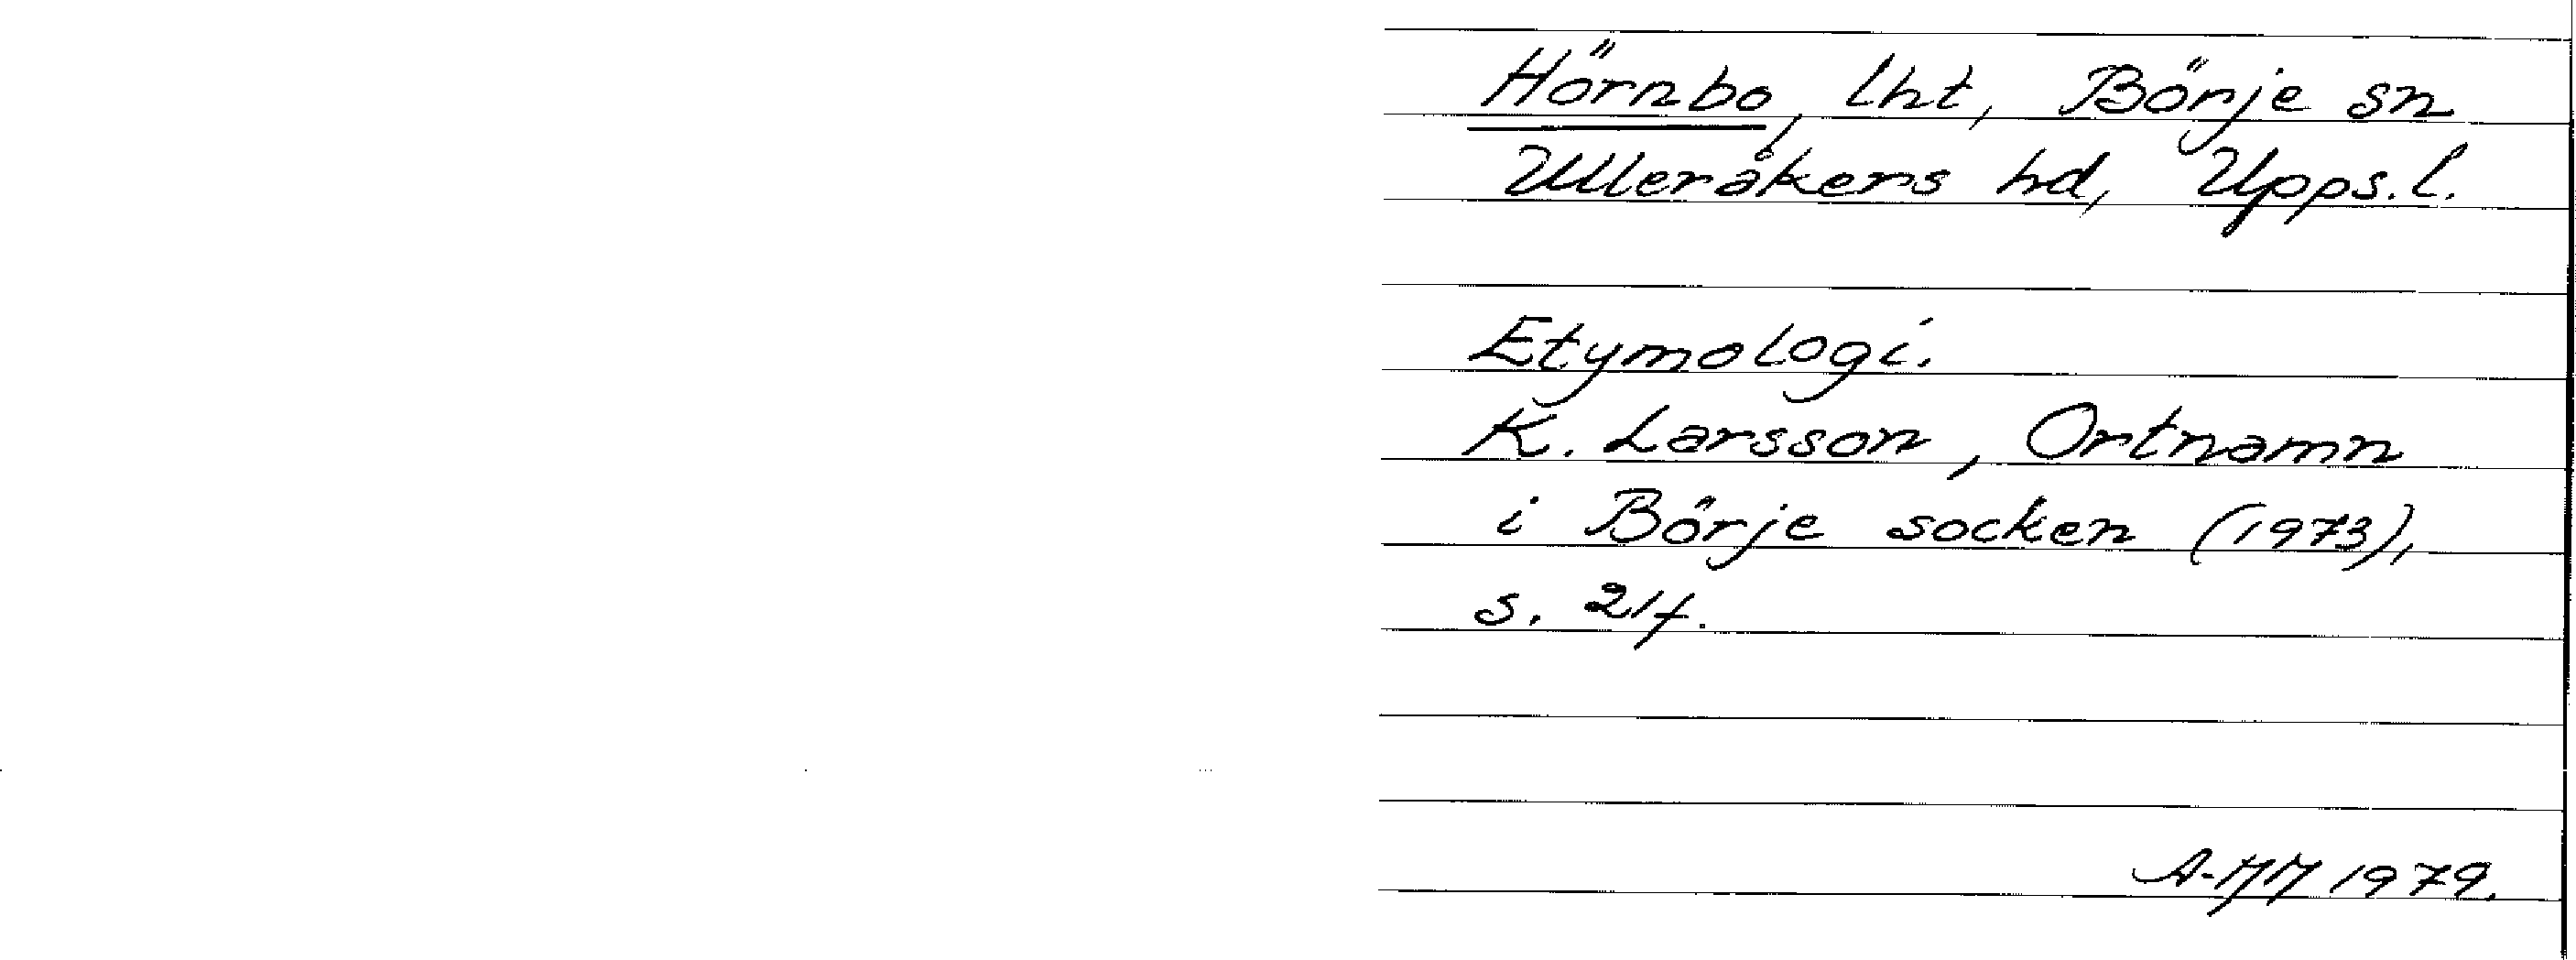 Hörnbo, lht, Börje sn
Ulleråkers hd, Upps.l.
Etymologi.
K. Larsson, Ortnamn
i Börje socken (1973),
s. 21f.
1979.